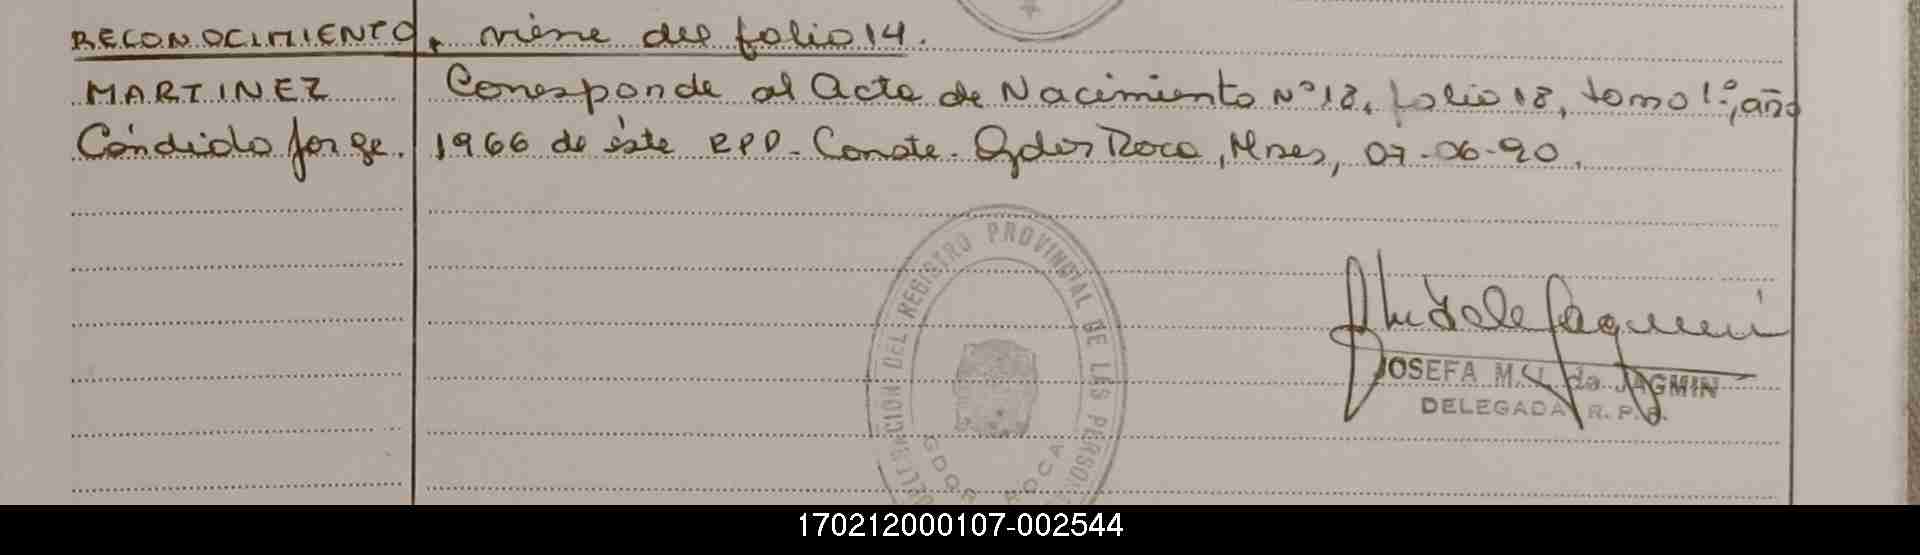 RECONOCIMIENTO, viene del folio 14.
MARTINEZ Corresponde al Acta de Nacimiento Nº 18, folio 18, tomo 1º, año
Cándido Jorge. 1966 de éste RPP. Conste. Gdor Roca, Mnes, 07-06-90.
DELEGACION DEL REGISTRO PROVINCIAL DE LAS PERSO
GDOR ROCA
JOSEFA M. de JAGMIN
DELEGADA R. P. P.
170212000107-002544